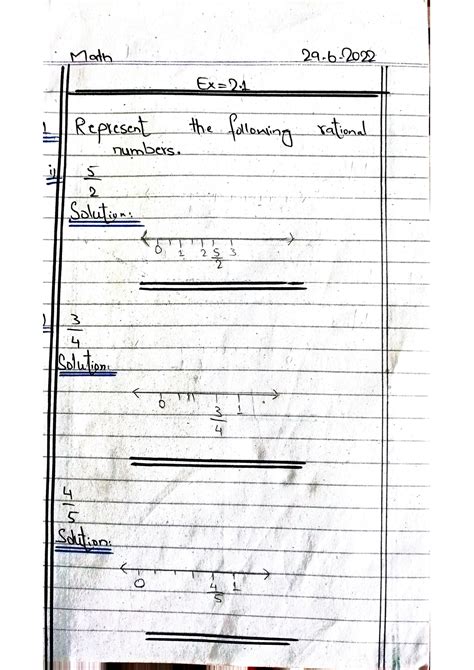 Math 29-6-2022
Ex=2.1
1 Represent the following rational
numbers.
i) 5
2
Solution:
0 1 2 5 3
2
) 3
4
Solution:
0 3 1
4
4
5
Solution:
0 4 1
5